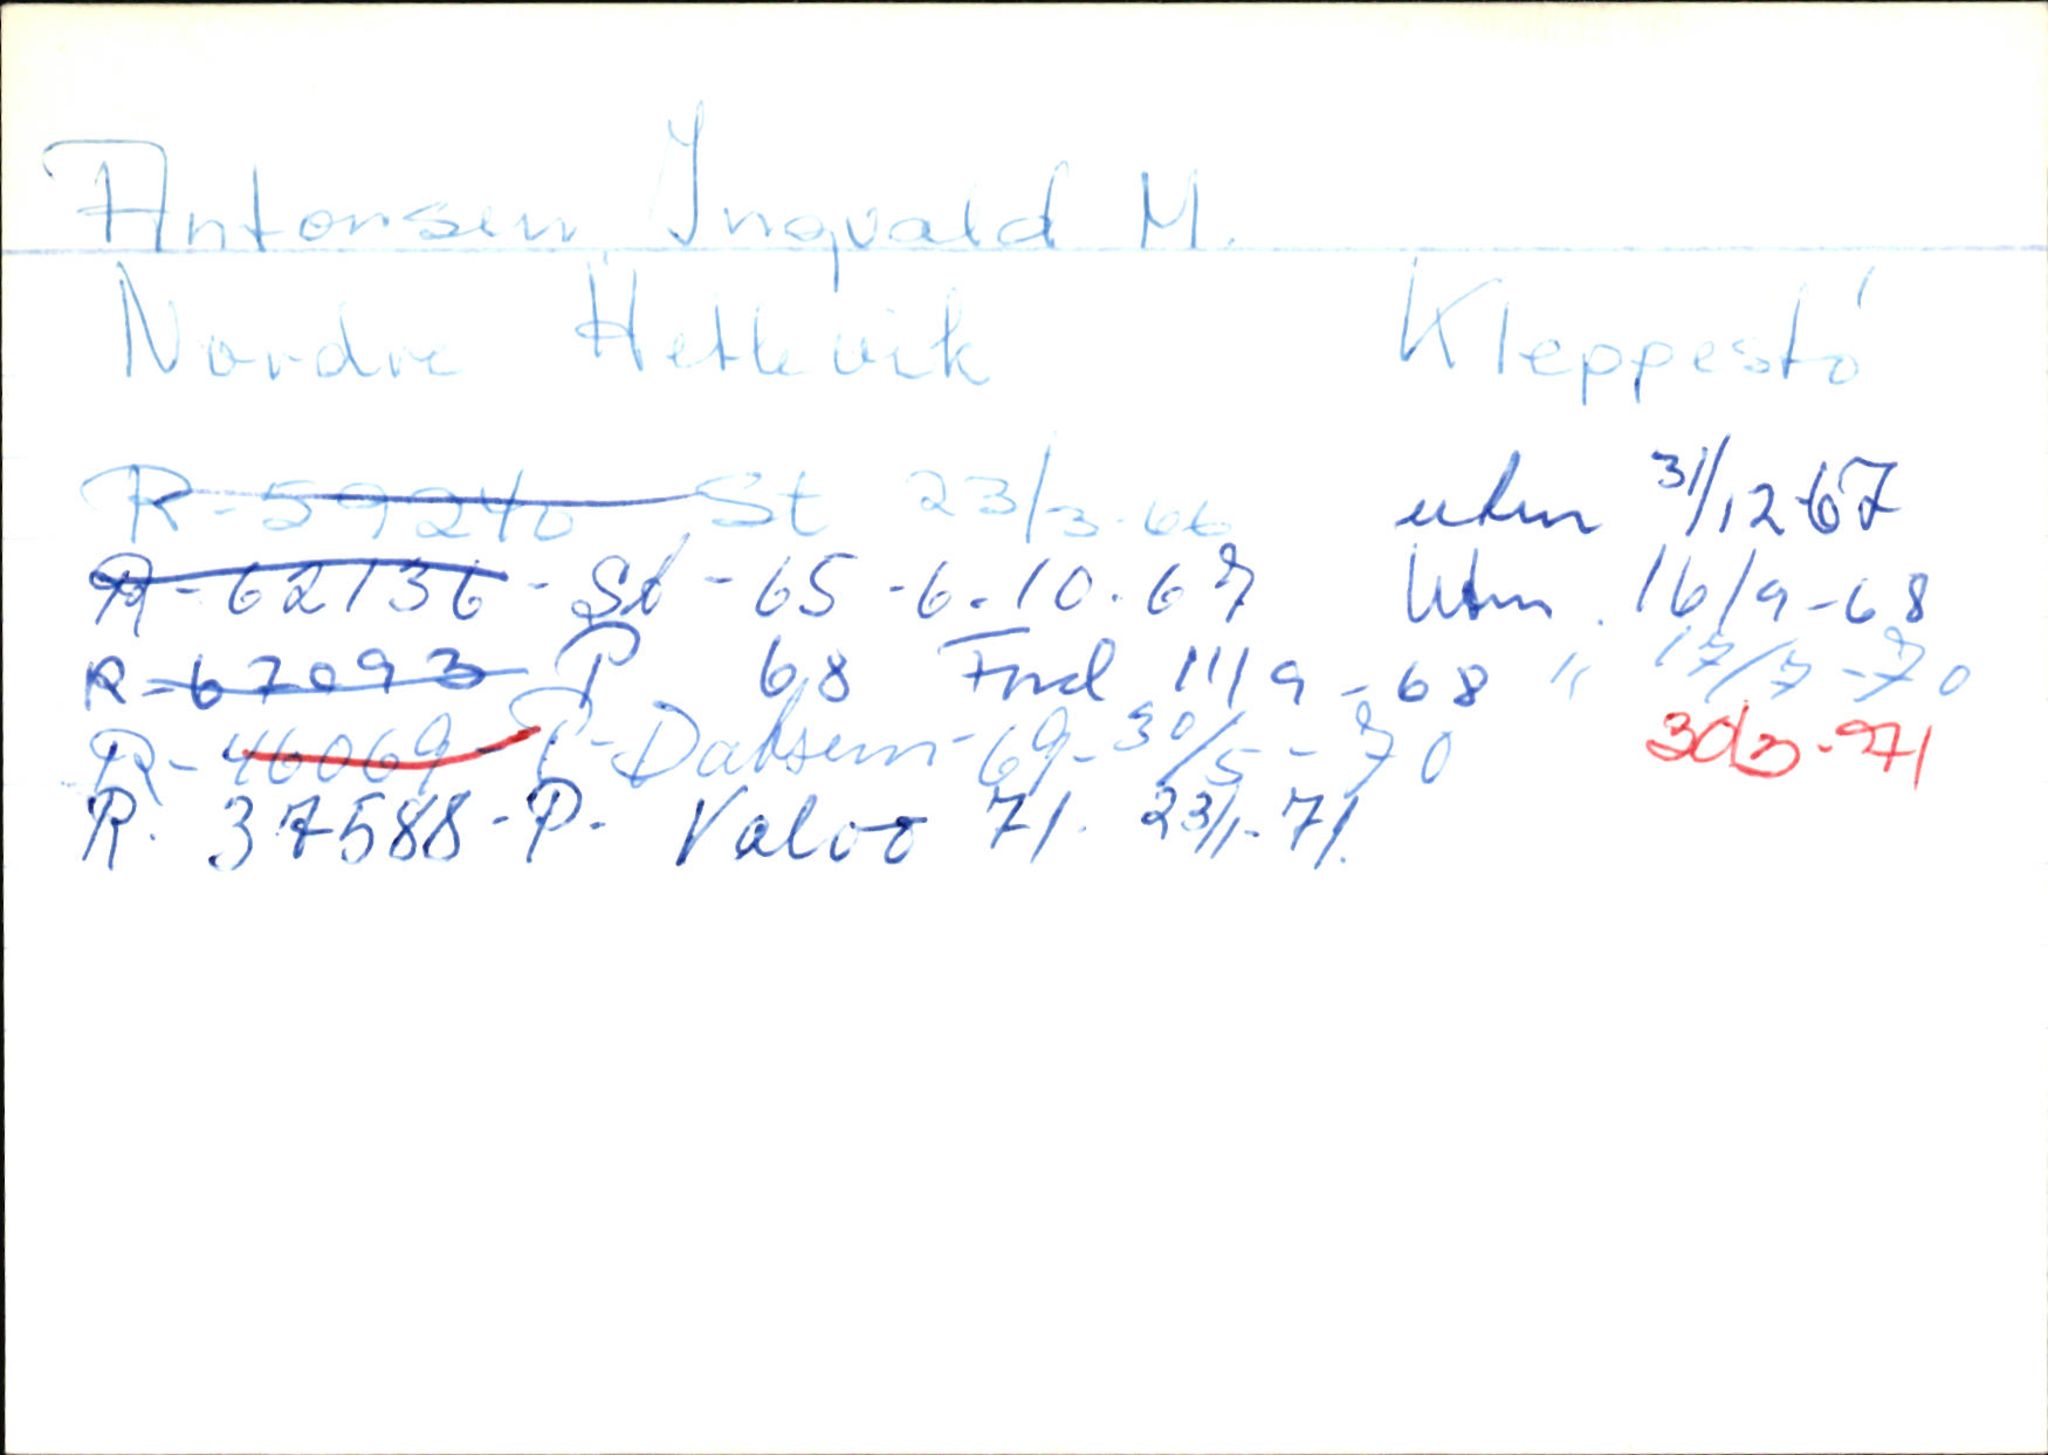 Antonsen, Ingvald M.
Nordre Hetlevik Kleppestö
R-59240 St 23/3-66 utm 31/12-67
R-62136 - St - 65 - 6.10.67 Utm. 16/9-68
R-67093 P 68 Ford 11/9-68 " 17/7-70
R-46069-P-Datsun-69-30/5-70 30/3-71
R. 37588-P. Volvo 71. 23/1-71.